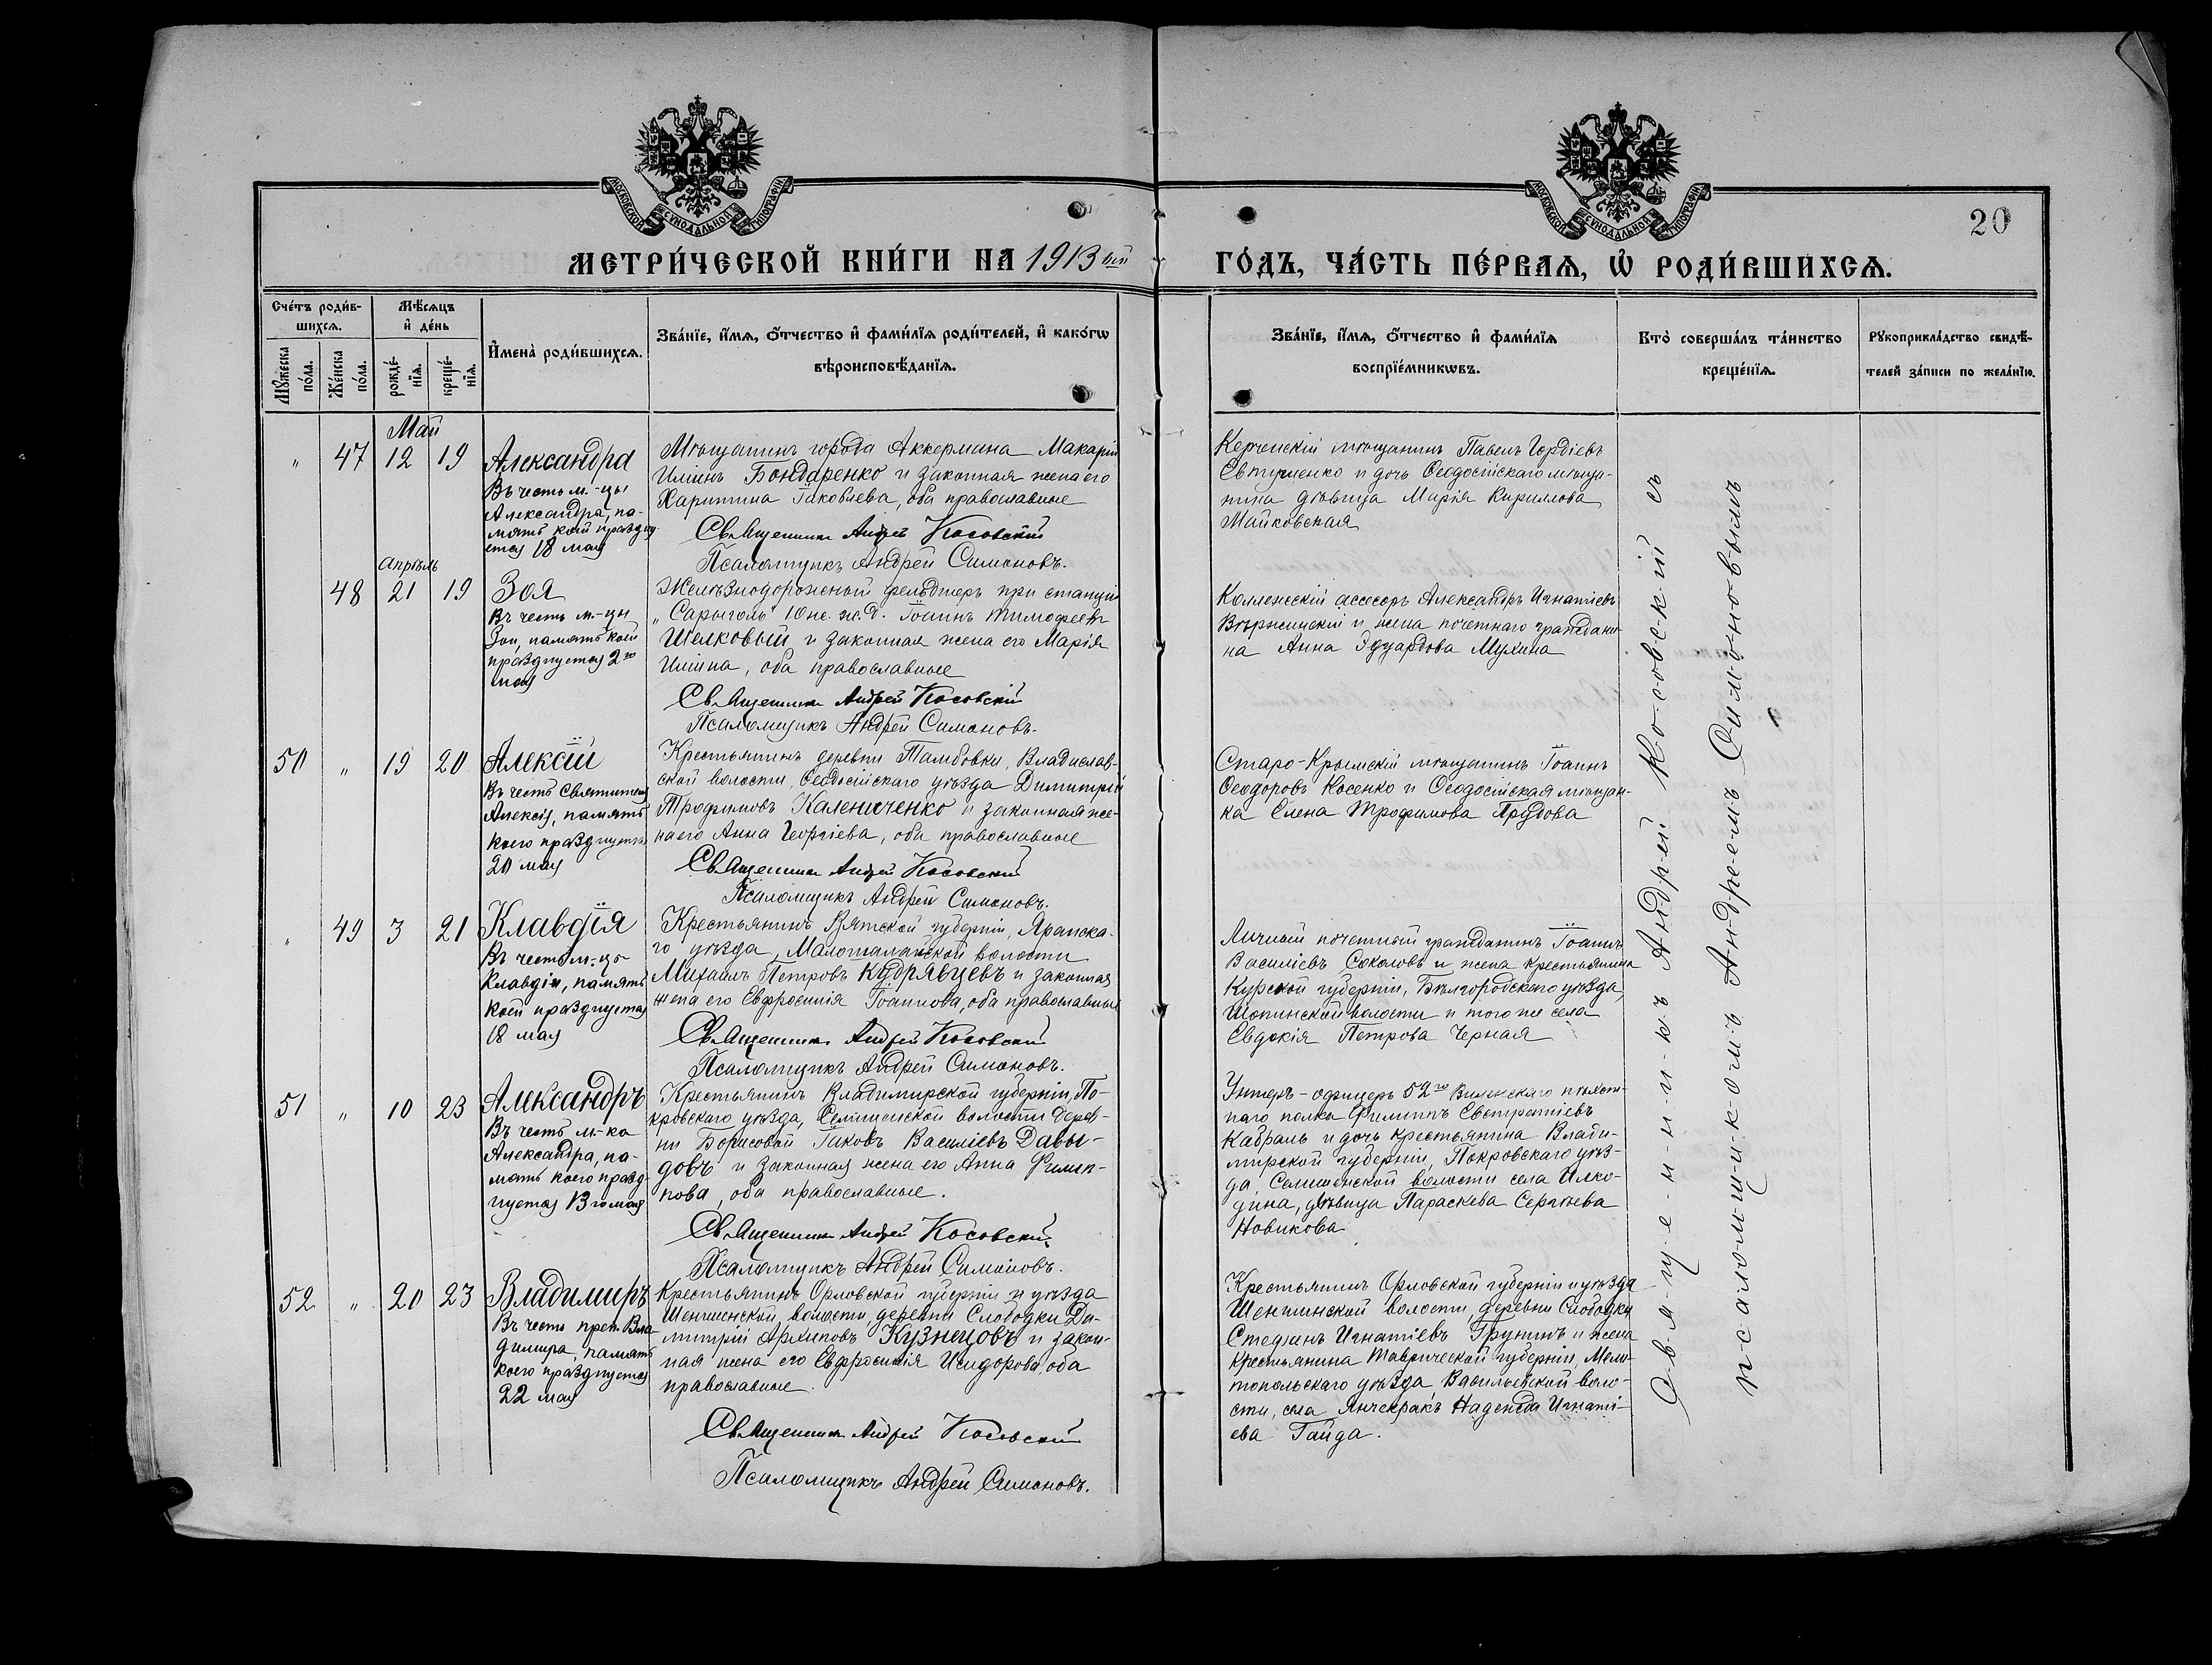 МОСКОВСКОЙ СѴНОДАЛЬНОЙ ТИПОГРАФІИ
МОСКОВСКОЙ СѴНОДАЛЬНОЙ ТИПОГРАФІИ
20
МЕТРИ́ЧЕСКОЙ КНИ́ГИ НА 1913 ый ГО́ДЪ, ЧА́СТЬ ПЕ́РВАѦ, Ѡ҆ РОДИ́ВШИХСѦ.
Сче́тъ роди́в-
шихсѧ.
Мꙋ́жеска
по́ла.
Же́нска
по́ла.
Мѣ́сѧцъ
и҆ де́нь
рожде́-
нїѧ.
креще́-
нїѧ.
И҆мена̀ роди́вшихсѧ.
Зва́нїе, и҆́мѧ, ѻ҆́тчество и҆ фами́лїѧ роди́телей, и҆ како́гѡ
вѣроисповѣ́данїѧ.
Зва́нїе, и҆́мѧ, ѻ҆́тчество и҆ фами́лїѧ
воспрїе́мникѡвъ.
Кто̀ соверша́лъ та́инство
креще́нїѧ.
Рꙋкоприкла́дство свидѣ́-
телей за́писи по жела́нїю.
Май
" 47 12 19
Александра
Въ честь м.-цы
Александра, па-
мять коей празdну
ется 18 мая
Мѣщанинъ города Аккермана Макарій
Иліинъ Бондаренко и законная жена его
Харитина Іаковлева, оба православные
Священникъ Андрей Косовскій
Псаломщикъ Андрей Симоновъ.
Керченскій мѣщанинъ Павелъ Гордіевъ
и дочь Ѳеодосійскаго мѣща-
нина дѣвица Марія Кириллова
Майковская
апрѣль
48 21 19
Зоя
Въ честь м.-цы
Зои, память коей
празднуется 2го
мая
Желѣзнодорожный фельдшеръ при станціи
„Сарыголь" Юж. ж.д. Іоаннъ Тимофеевъ
Шелковый и законная жена его Марія
Иліина, оба православные
Священникъ Андрей Косовскій
Псаломщикъ Андрей Симоновъ.
Коллежскій асесоръ Александръ Игнатіевъ
и жена почетнаго граждани-
на Анна Эдуардова Мухина
50 " 19 20
Алексій
Въ честь Святителя
Алексія, память
коего празднуется
20 мая
Крестьянинъ деревни Тамбовки, Владислав-
ской волости, Ѳеодосійскаго уѣзда Димитрій
Трофимовъ Калениченко и законная же-
на его Анна Георгіева, оба православные
Священникъ Андрей Косовскій
Псаломщикъ Андрей Симоновъ.
Старо-Крымскій мѣщанинъ Іоаннъ
Ѳеодоровъ Косенко и Ѳеодосійская мѣщан-
ка Елена Трофимова Прудова
" 49 3 21
Клавдія
Въ честь м.-цы
Клавдіи, память
коей празднуется
18 мая
Крестьянинъ Вятской губерніи, Яранска-
го уѣзда, Малошалайской волости
Михаилъ Петровъ Кудрявцевъ и законная
жена его Евфросинія Іоаннова, оба православные
Священникъ Андрей Косовскій
Псаломщикъ Андрей Симоновъ.
Личный почетный гражданинъ Іоаннъ
Василіевъ Соколовъ и жена крестьянина
Курской губерніи, Бѣлгородскаго уѣзда,
Шопинской волости и того же села
Евдокія Петрова Черная
51 " 10 23
Александръ
Въ честь м.-ка
Александра, па-
мять коего празд-
нуется 13го мая
Крестьянинъ Владимирской губерніи, По-
кровскаго уѣзда, Селищенской волости дерев-
ни Борисовой Іаковъ Василіевъ Давы-
довъ и законная жена его Анна Филип-
пова, оба православные.
Священникъ Андрей Косовскій
Псаломщикъ Андрей Симоновъ.
Унтеръ-офицеръ 52го Виленскаго пѣхот-
наго полка Филиппъ Евстратіевъ
Кабраль и дочь крестьянина Влади-
мирской губерніи, Покровскаго уѣз-
да, Селищенской волости села Илко-
дина, дѣвица Параскева Сергѣева
Новикова
52 " 20 23
Владимиръ
Въ честь преп. Вла
димира, память
коего празднуется
22 мая
Крестьянинъ Орловской губерніи и уѣзда
Шеншинской волости, деревни Слободки Ди-
митрій Архиповъ Кузнецовъ и закон-
ная жена его Евфросинія Исидорова, оба
православные.
Священникъ Андрей Косовскій
Псаломщикъ Андрей Симоновъ.
Крестьянинъ Орловской губерніи и уѣзда
Шеншинской волости, деревни Слободки
Стефанъ Игнатіевъ Грунинъ и жена
крестьянина Таврической губерніи, Мели-
топольскаго уѣзда Васильевской воло-
сти, села Янчекракъ Надежда Игнаті-
ева Гайда.
Свя-ще-н-н-и-к-ъ Андрей Ко-со-вс-к-ій съ
псалом-щ-и-к-омъ Ан-дре-е-мъ Си-мо-но-вымъ